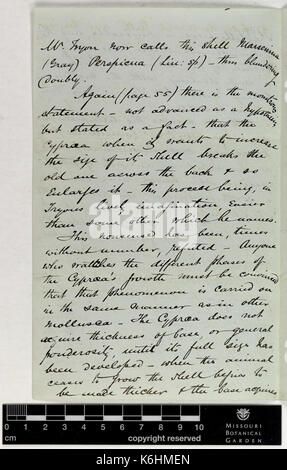 Mr Tryon now calls this shell Marsenina
(Gray) Perspicua (Lin: sp) - thus blundering
doubly.
Again (page 55) there is the monstrous
statement - not advanced as a hypothesis
but stated as a fact - that the
Cypræa when it wants to increase
the size of its shell breaks the
old one across the back & so
enlarges it - this process being, in
Tryons lively imagination, easier
than some other, which he names.
This nonsense has been, times
without number, refuted - Anyone
who watches the different phases of
the Cypræa's growth must be convinced
that that phenomenon is carried on
in the same manner as in other
mollusca - The Cypræa does not
acquire thickness of base, or general
ponderosity, until its full size has
been developed - when the animal
ceases to grow the shell begins to
be made thicker & the base acquires
0 1 2 3 4 5 6 7 8 9 10
cm
copyright reserved
MISSOURI
BOTANICAL
GARDEN
alamy
alamy stock photo
K6HMEN